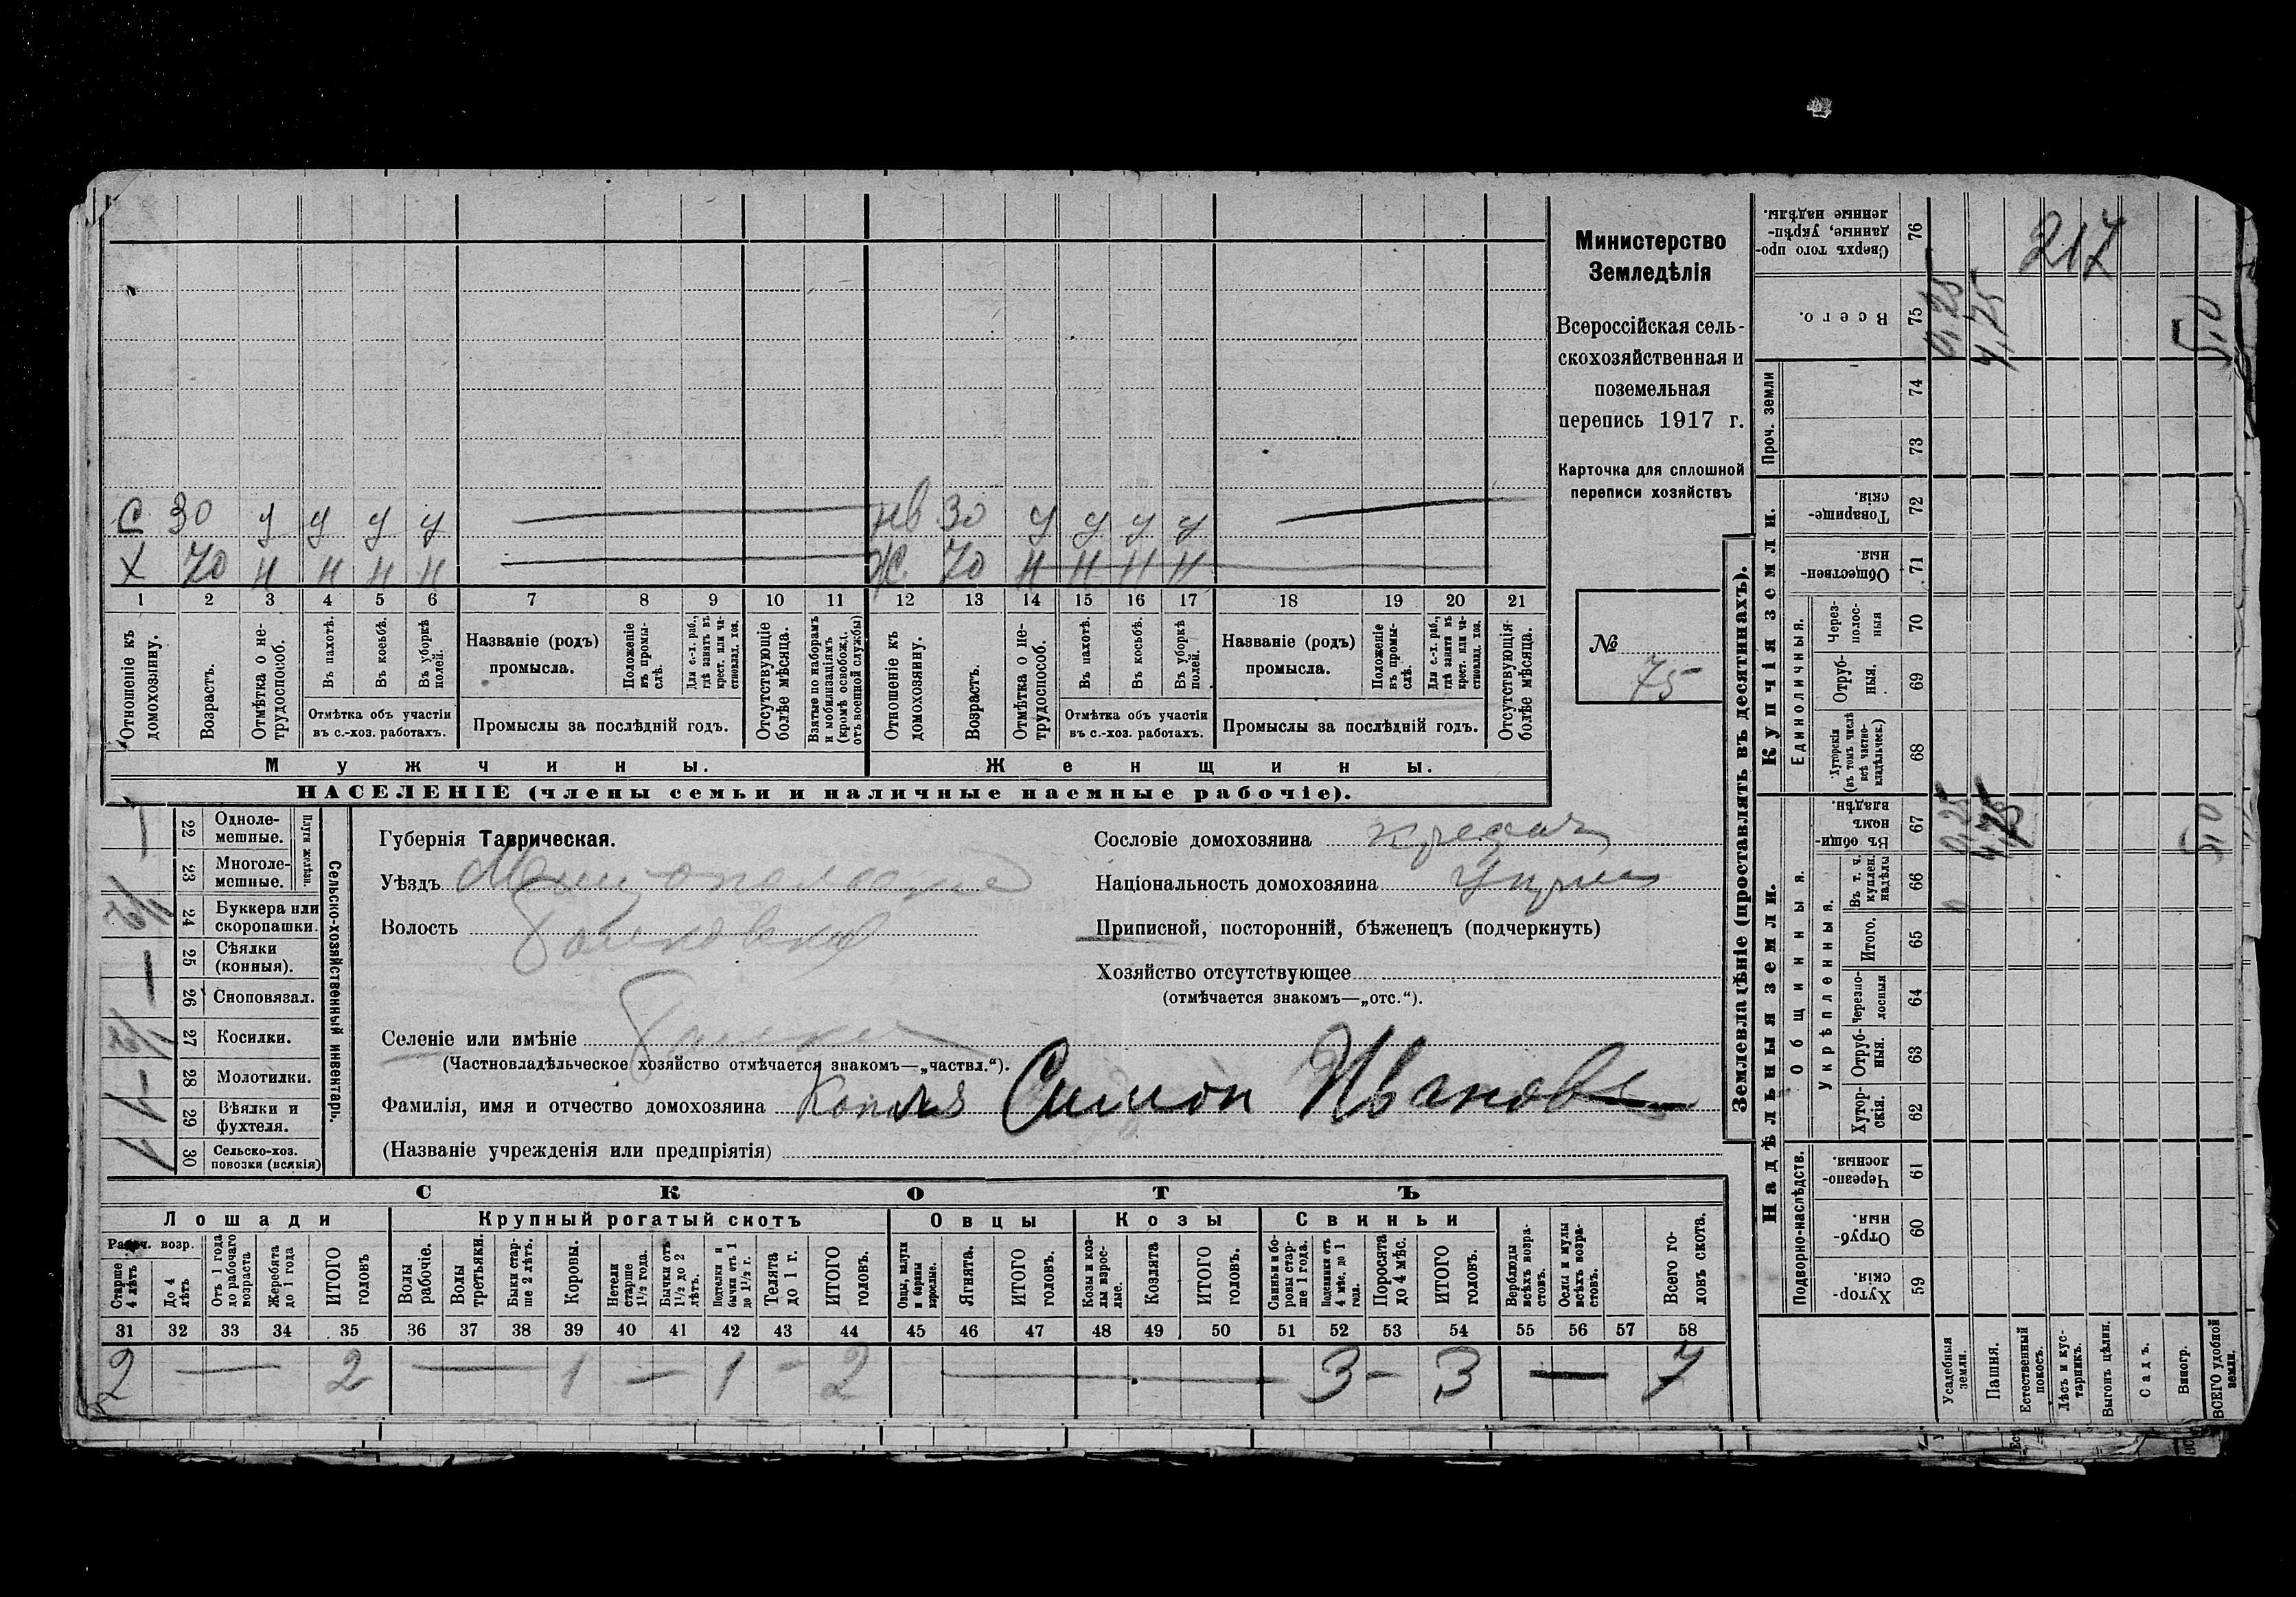 С 30 у у у у нев 30 у у у у
Х 70 н н н н Ж 70 н н н н
1 2 3 4 5 6 7 8 9 10 11 12 13 14 15 16 17 18 19 20 21
Отношеніе къ домохозяину.
Возрастъ.
Отмѣтка о не-трудоспособ.
Въ пахотѣ.
Въ косьбѣ.
Въ уборкѣ полей.
Отмѣтка объ участіи
въ с.-хоз. работахъ.
Названіе (родъ)
промысла.
Положеніе въ промы-слѣ.
Для с.-х. раб., гдѣ занятъ въ крест. или ча-стновлад. хоз.
Промыслы за послѣдній годъ.
Отсутствующіе болѣе мѣсяца.
Взятые по наборамъ и мобилизаціямъ (кромѣ освобожд. отъ военной службы)
Отношеніе къ домохозяину.
Возрастъ.
Отмѣтка о не-трудоспособ.
Въ пахотѣ.
Въ косьбѣ.
Въ уборкѣ полей.
Отмѣтка объ участіи
въ с.-хоз. работахъ.
Названіе (родъ)
промысла.
Положеніе въ промы-слѣ.
Для с.-х. раб., гдѣ занятъ въ крест. или ча-стновлад. хоз.
Промыслы за послѣдній годъ.
Отсутствующія болѣе мѣсяца.
Мужчины. Женщины.
НАСЕЛЕНІЕ (члены семьи и наличные наемные рабочіе).
Министерство
Земледѣлія
Всероссійская сель-
скохозяйственная и
поземельная
перепись 1917 г.
Карточка для сплошной
переписи хозяйствъ
№
75
Сельско-хозяйственный инвентарь.
Плуги желѣзн.
22 Одноле-мешные.
23 Многоле-мешные.
24 Буккера или скоропашки.
25 Сѣялки (конныя).
26 Сноповязал.
27 Косилки.
28 Молотилки.
29 Вѣялки и фухтеля.
30 Сельско-хоз. повозки (всякія)
Губернія Таврическая.
Уѣздъ Мелитопольскій
Волость
Селеніе или имѣніе
(Частновладѣльческое хозяйство отмѣчается знакомъ—„частвл.“).
Фамилія, имя и отчество домохозяина Симон Иванов
(Названіе учрежденія или предпріятія)
Сословіе домохозяина
Національность домохозяина
Приписной, посторонній, бѣженецъ (подчеркнуть)
Хозяйство отсутствующее
(отмѣчается знакомъ—„отс.“).
СКОТЪ
Лошади Крупный рогатый скотъ Овцы Козы Свиньи
Рабоч. возр.
Старше 4 лѣтъ
До 4 лѣтъ
Отъ 1 года до рабочаго возраста
Жеребята до 1 года
ИТОГО головъ
Волы рабочіе.
Волы третьяки.
Быки стар-ше 2 лѣтъ.
Коровы.
Нетели старше 1½ года.
Бычки отъ 1½ до 2 лѣтъ.
Подтелки и бычки отъ 1 до 1½ г.
Телята до 1 г.
ИТОГО головъ.
Овцы, валухи и бараны взрослые.
Ягнята.
ИТОГО головъ.
Козы и коз-лы взрос-лые.
Козлята
ИТОГО головъ.
Свиньи и бо-ровы стар-ше 1 года.
Подсвинки отъ 4 мѣс. до 1 года.
Поросята до 4 мѣс.
ИТОГО головъ.
Верблюды всѣхъ возра-стовъ.
Ослы и мулы всѣхъ возра-стовъ.
Всего го-ловъ скота.
31 32 33 34 35 36 37 38 39 40 41 42 43 44 45 46 47 48 49 50 51 52 53 54 55 56 57 58
2 — 2 — 1 — 1 - 2 — 3 - 3 — 7
Землевладѣніе (проставлять въ десятинахъ).
Надѣльныя земли. Купчія земли. Проч. земли
Подворно-наслѣдств.
Общинныя.
Укрѣпленныя.
Единоличныя.
59 Хутор-скія.
60 Отруб-ныя.
61 Черезпо-лосныя
62 Хутор-скія.
63 Отруб-ныя.
64 Черезпо-лосныя
65 Итого.
66 Въ т. ч. куплен. надѣлы
67 Въ общи-номъ владѣн.
68 Хуторскія (въ томъ числѣ всѣ частно-владѣльческ.)
69 Отруб-ныя.
70 Через-полос-ныя
71 Обществен-ныя.
72 Товарище-скія.
73
74
75 Всего.
76 Сверхъ того про-данные, укрѣп-ленные надѣлы.
Усадебныя земли.
Пашня.
Естественный покосъ.
Лѣсъ и кус-тарникъ.
Выгонъ цѣлин.
Садъ.
Виногр.
ВСЕГО удобной земли.
0,25
4,75
5,0
0,25
4,75
5,0
217